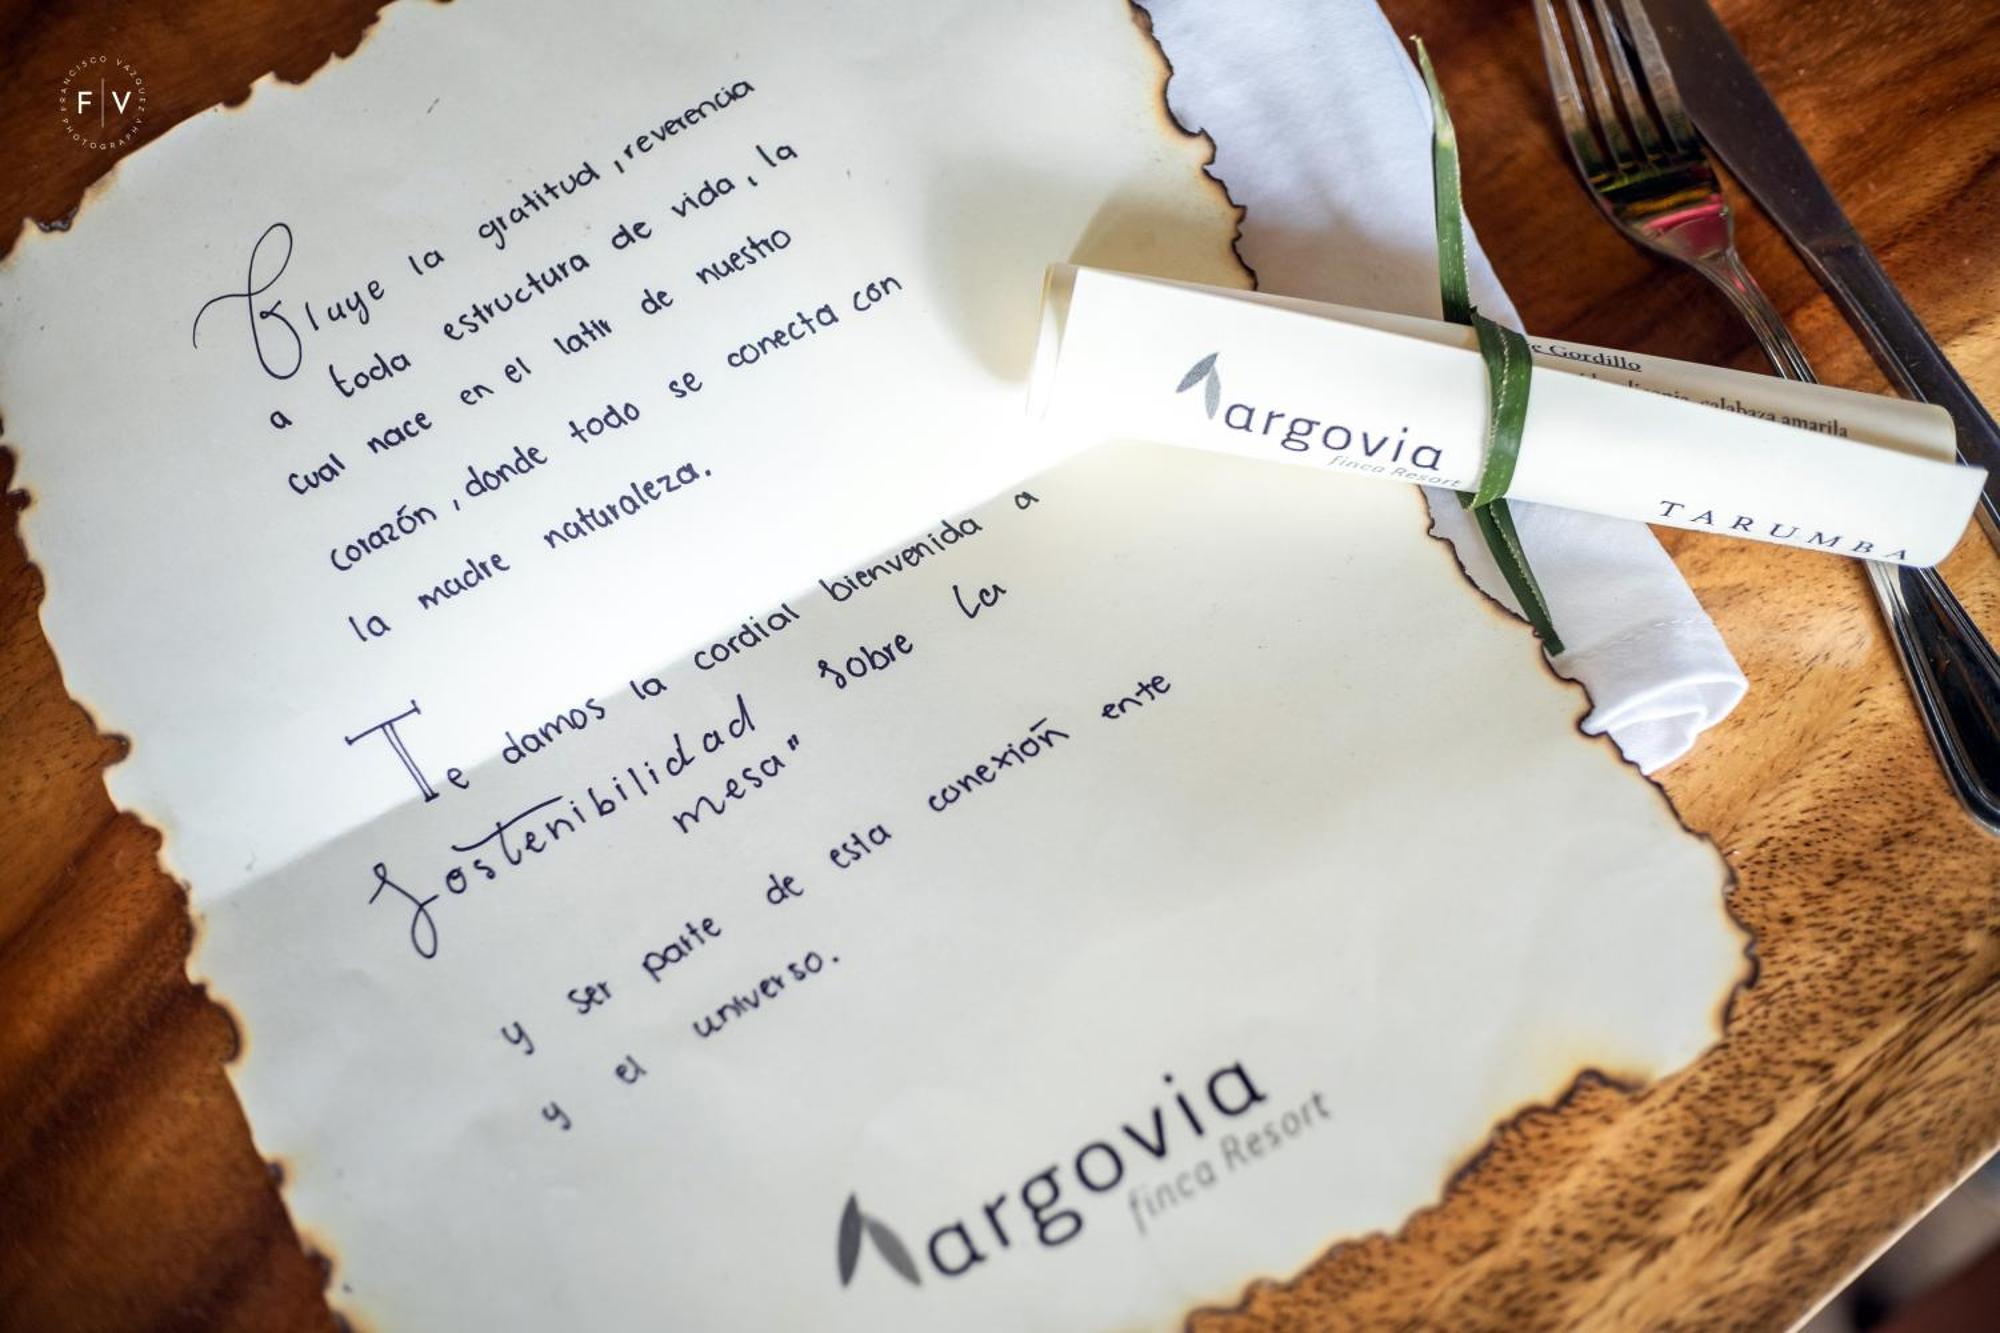 FRANCISCO VAZQUEZ
F|V
PHOTOGRAPHY
Fluye la gratitud, reverencia
a toda estructura de vida, la
cual nace en el latir de nuestro
corazón, donde todo se conecta con
la madre naturaleza.
Te damos la cordial bienvenida a
Sostenibilidad sobre la
mesa"
y ser parte de esta conexión ente
y el universo.
argovia
finca Resort
Gordillo
calabaza amarilla
argovia
finca Resort
TARUMBA